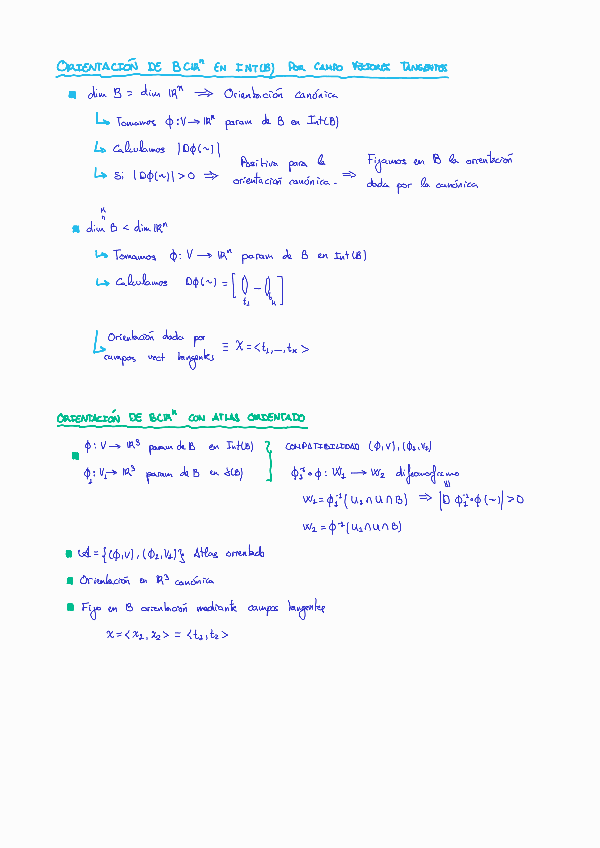 ORIENTACIÓN DE B⊂ℝⁿ EN INT(B) POR CAMPO VECTORES TANGENTES
dim B = dim ℝⁿ ⟹ Orientación canónica
↳ Tomamos ϕ: V → ℝⁿ param de B en Int(B)
↳ Calculamos |Dϕ(~)|
↳ Si |Dϕ(~)| > 0 ⟹ Positiva para la orientación canónica. ⟹ Fijamos en B la orientación dada por la canónica
dim B < dim ℝⁿ
↳ Tomamos ϕ: V → ℝⁿ param de B en Int(B)
↳ Calculamos Dϕ(~) = [ () — () ]
t₁ tₖ
↳ Orientación dada por campos vect tangentes ≡ X = <t₁, —, tₖ>
ORIENTACIÓN DE B⊂ℝⁿ CON ATLAS ORIENTADO
ϕ: V → ℝ³ param de B en Int(B) COMPATIBILIDAD (ϕ,V), (ϕ₁,V₁)
ϕ₁: V₁ → ℝ³ param de B en ∂(B) ϕ₁⁻¹∘ϕ: W₁ → W₂ difeomorfismo
W₁ = ϕ₁⁻¹(U₁∩U∩B) ⟹ |D ϕ₁⁻¹∘ϕ(~)| > 0
W₂ = ϕ⁻¹(U₁∩U∩B)
A = {(ϕ,V), (ϕ₁,V₁)} Atlas orientado
Orientación en ℝ³ canónica
Fijo en B orientación mediante campos tangentes
X = <X₁, X₂> = <t₁, t₂>